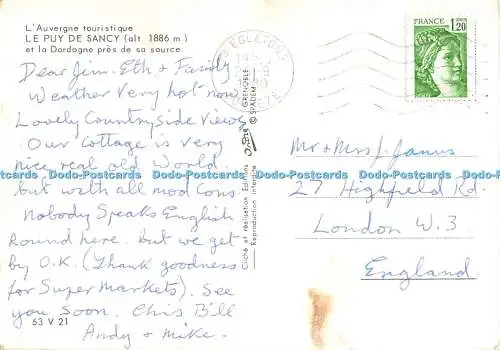 L'Auvergne touristique
LE PUY DE SANCY (alt 1886 m)
et la Dordogne près de sa source.
Dear Jim. Eth + Family
Weather Very hot now
Lovely Countryside Views
Our Cottage is very
nice real old World
but with all mod Cons.
Nobody Speaks English
Round here. but we get
by O.K. (Thank goodness
for Super Markets). See
you Soon. Chris Bill
Andy + Mike.
63 V 21
EGLETONS
GRENOBLE
© SPADEM
Cliché et réalisation Editions
Reproduction interdite
FRANCE
1,20
Mr + Mrs J. Janus
27 Highfield Rd.
London W.3
England.
www.hippostcard.com